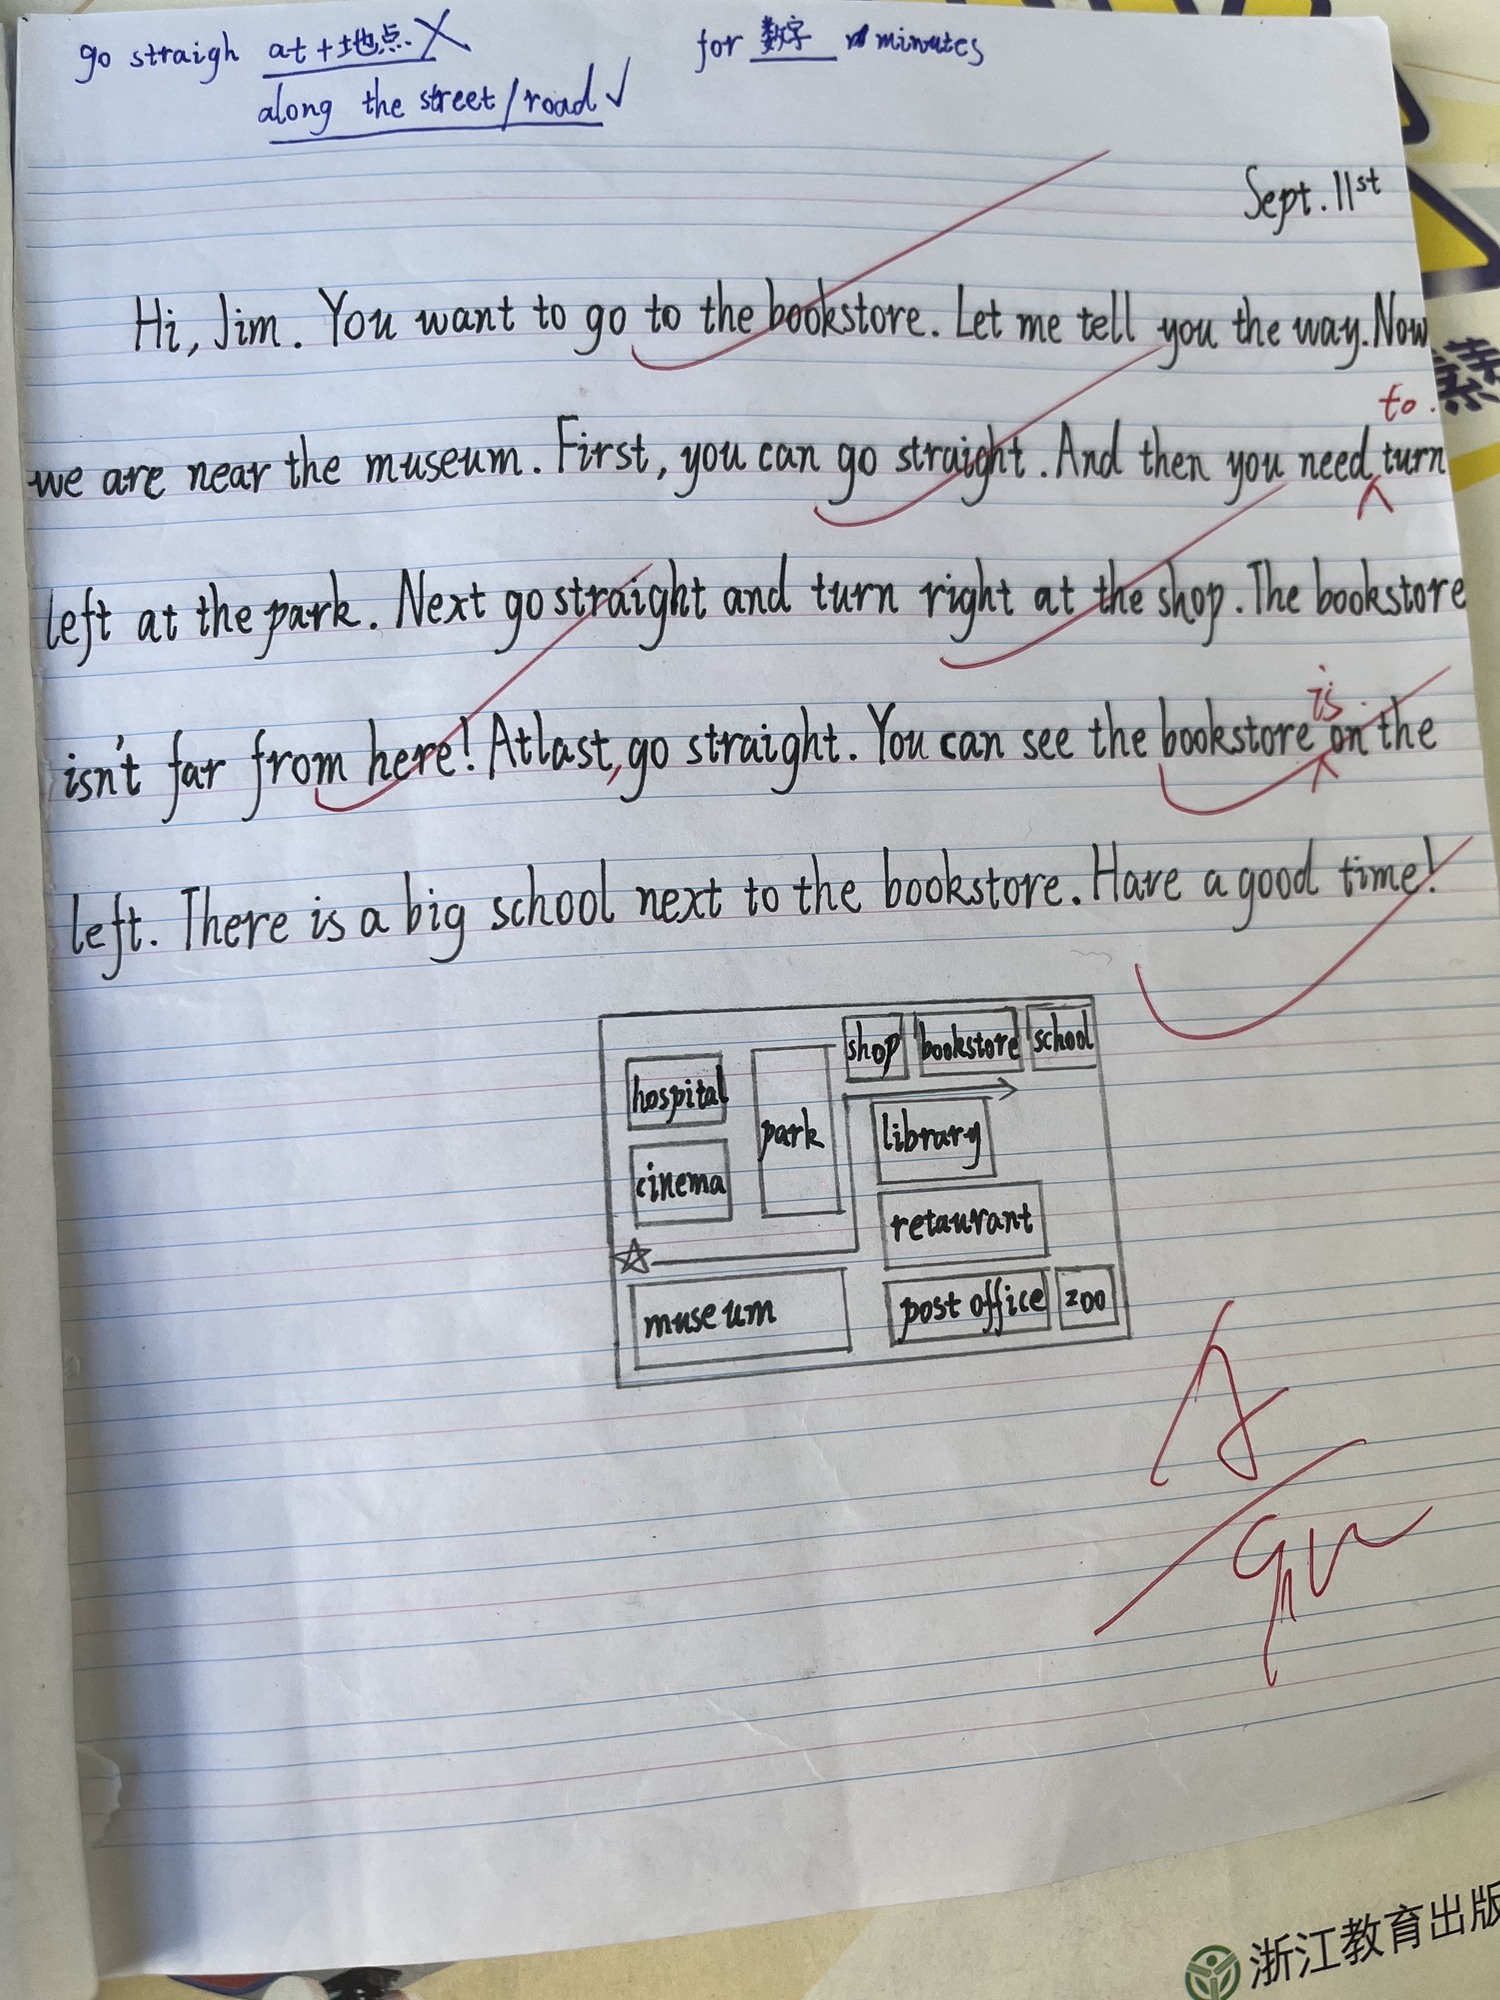 go straigh at+地点 X
along the street/road √
for 数字 minutes
Sept. 11st
Hi, Jim. You want to go to the bookstore. Let me tell you the way. Now
to.
we are near the museum. First, you can go straight. And then you need turn
left at the park. Next go straight and turn right at the shop. The bookstore
is.
isn't far from here! Atlast, go straight. You can see the bookstore on the
left. There is a big school next to the bookstore. Have a good time!
shop bookstore school
hospital
park
library
cinema
retaurant
museum
post office zoo
A
浙江教育出版